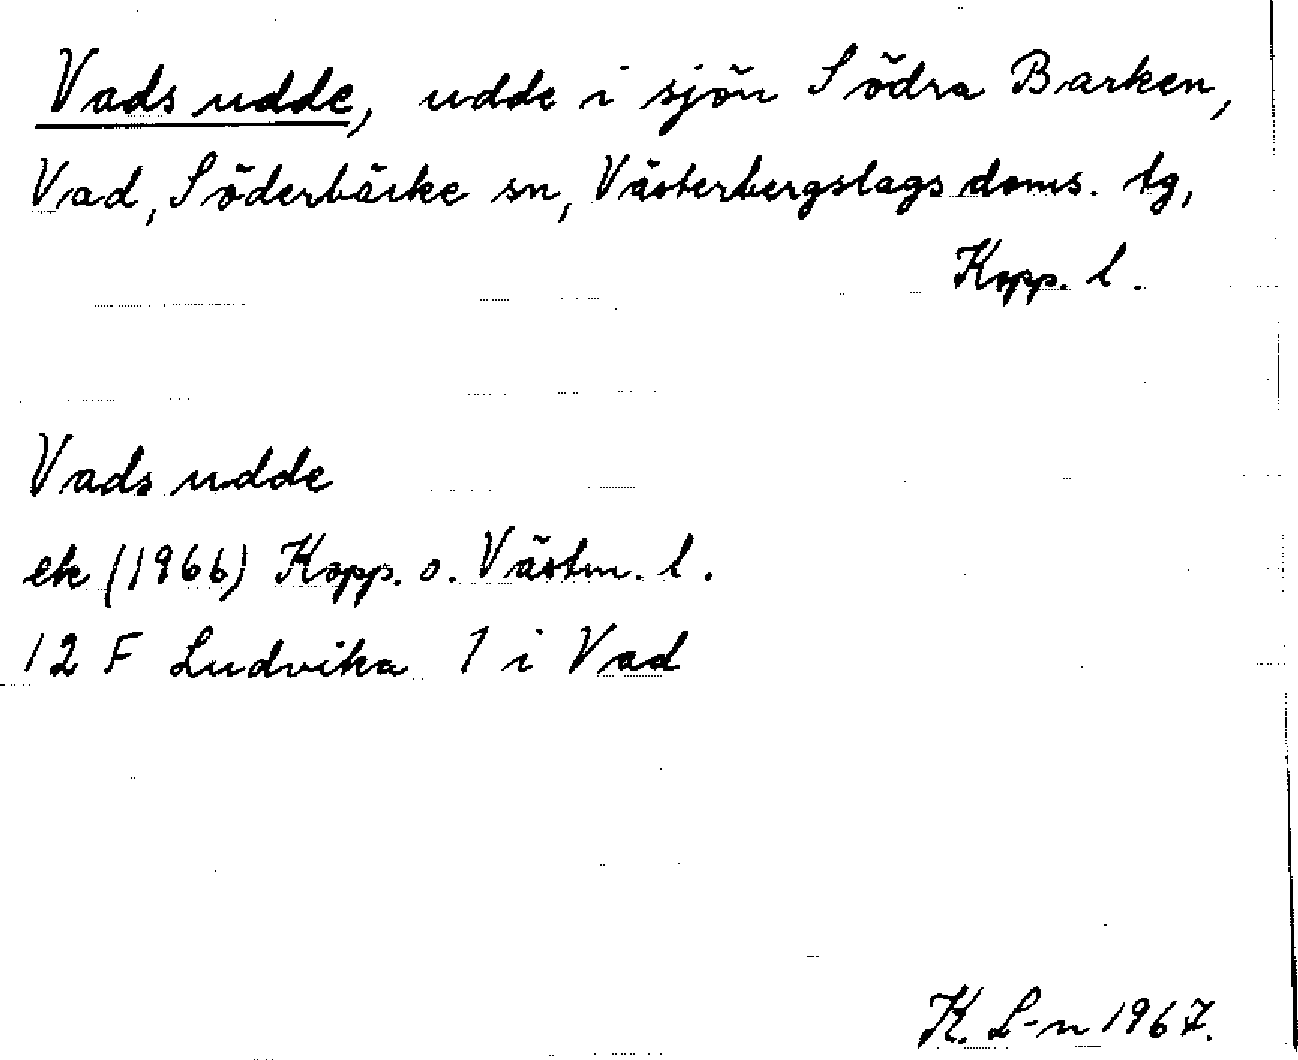 Vads udde, udde i sjön Södra Barken,
Vad, Söderbärke sn, Västerbergslags doms. tg,
Kopp. l.
Vads udde
ek (1966) Kopp. o. Västm. l.
12 F Ludvika 1 i Vad
K. L-n 1967.